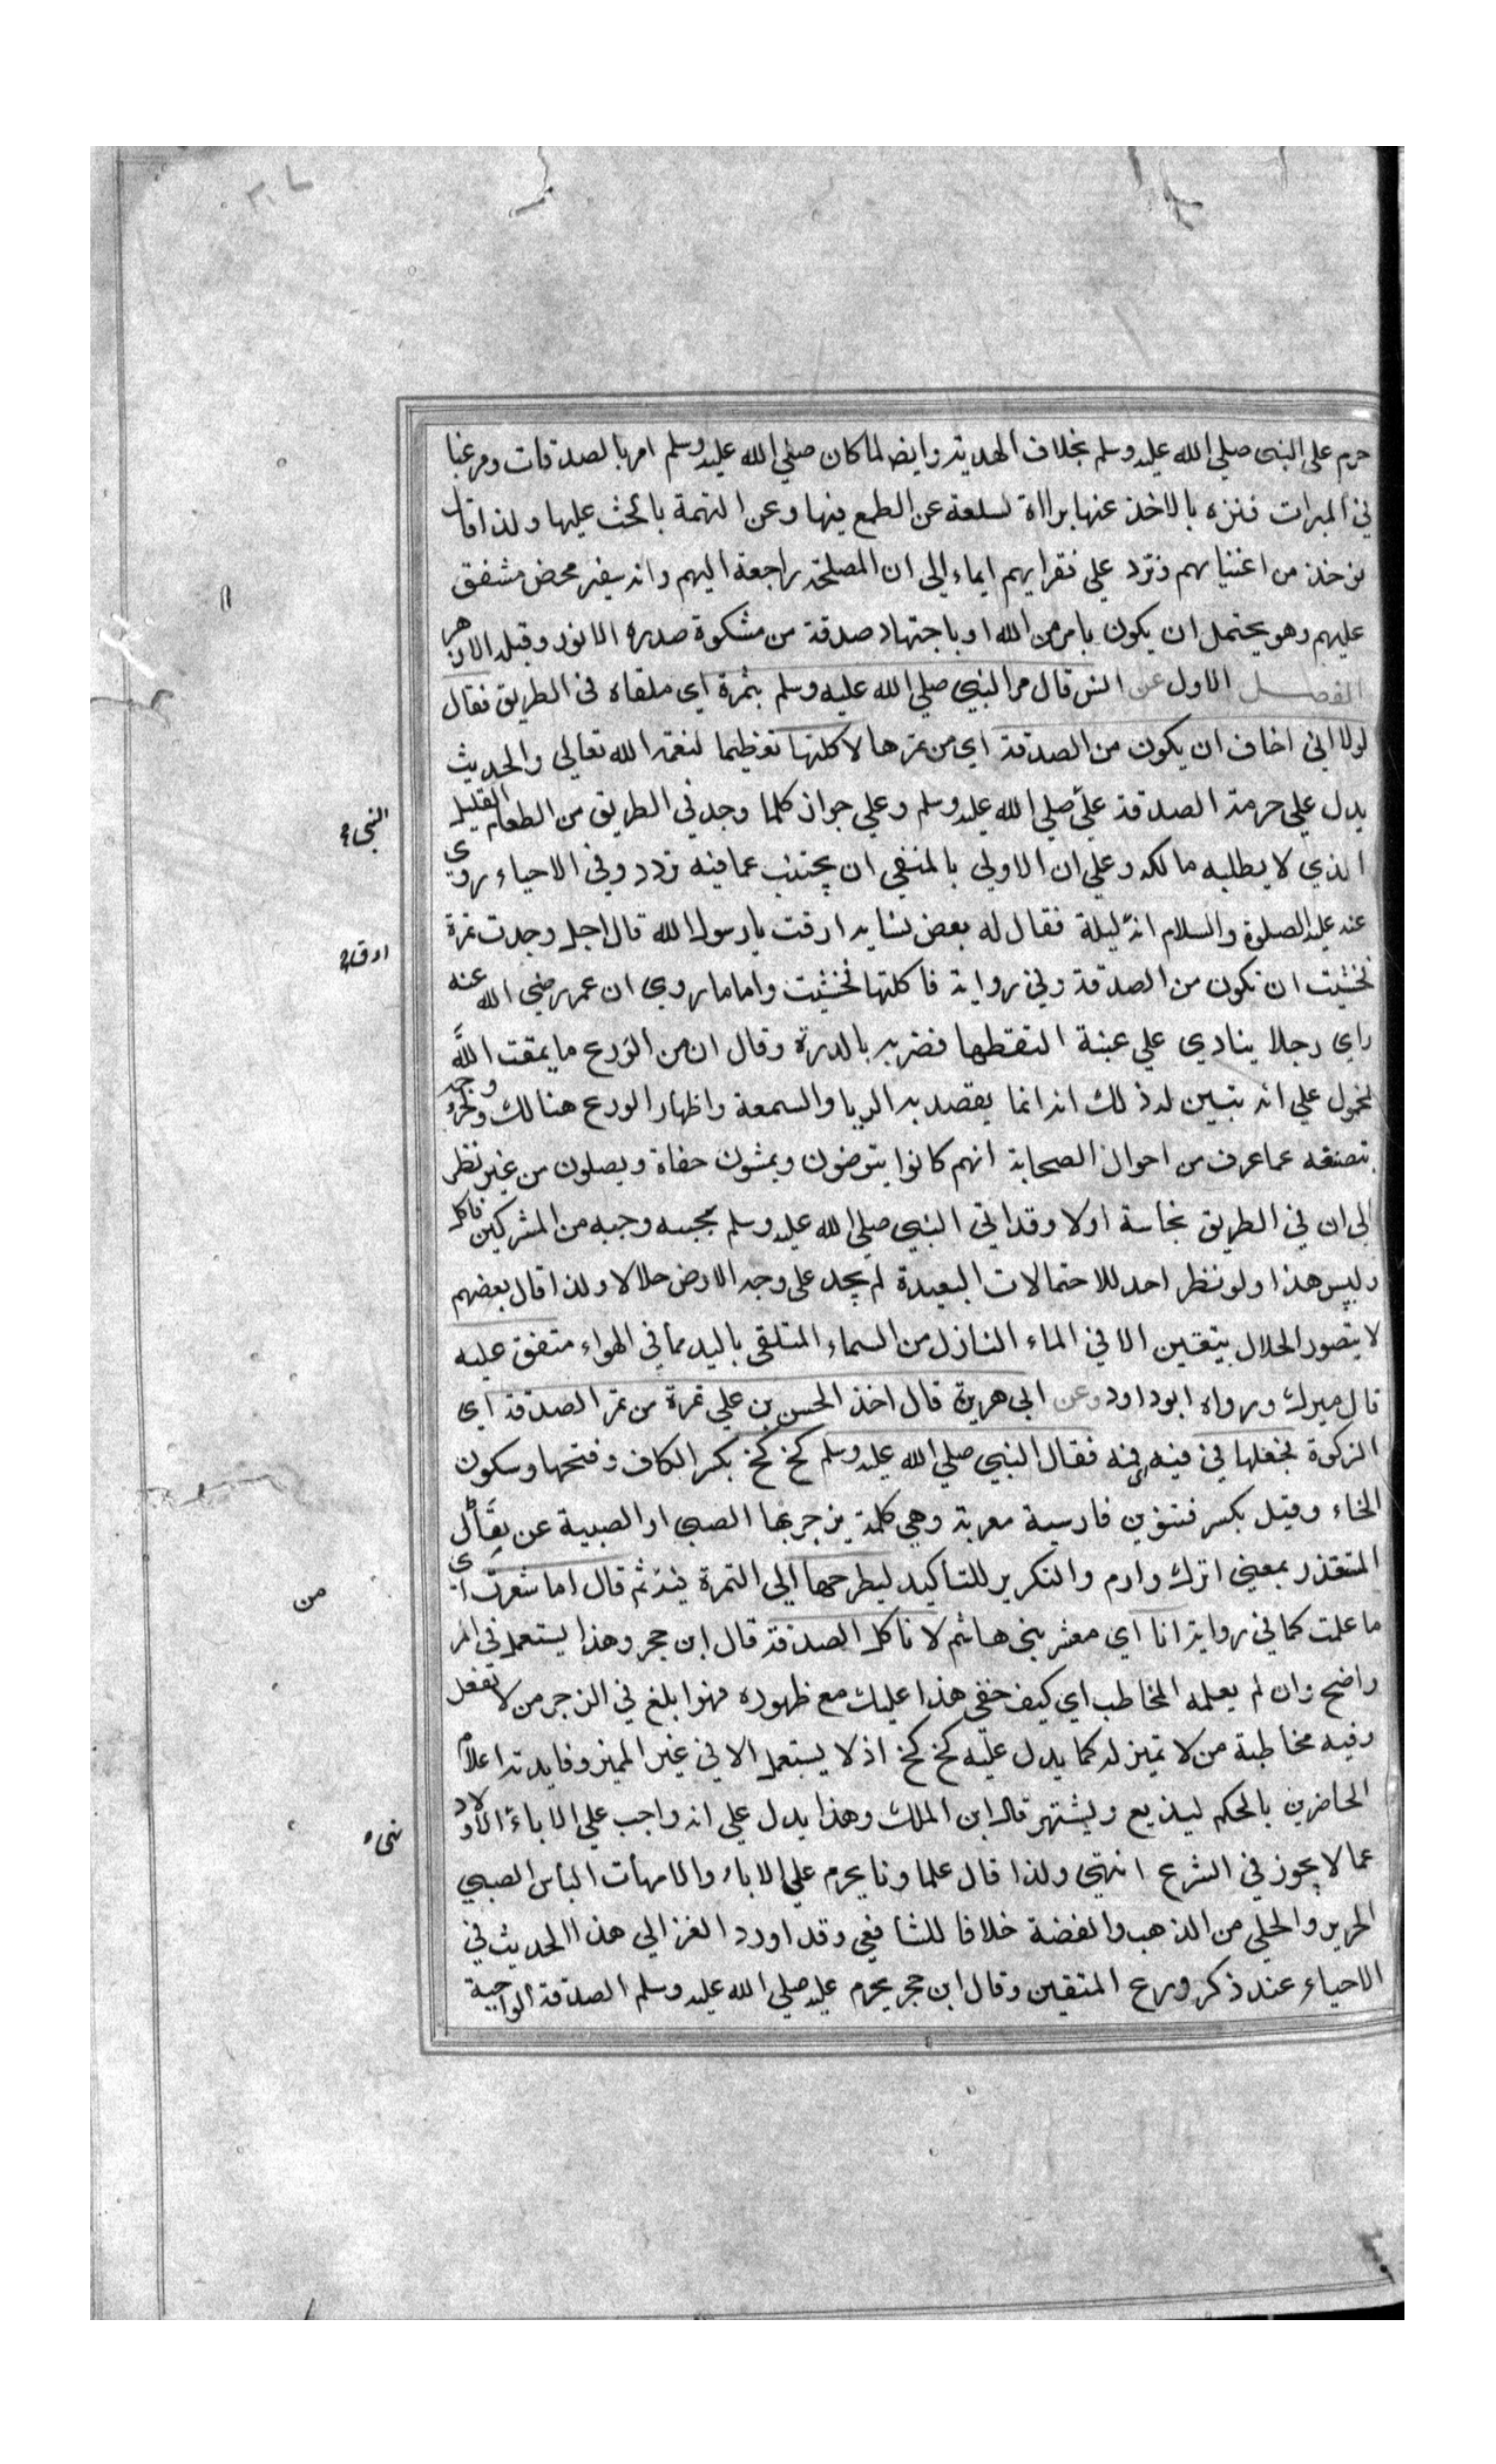 حرم على النبى صلي الله عليه وسلم بخلاف الهدية وايضا لما كان صلي الله عليه وسلم امر بالصدقات ومرغبا
في المبرات فتنزه بالاخذ عنها براأة لسلعة عن الطمع فيها وعن التهمة بالحث عليها ولذا قال
تؤخذ من اغنيايهم وترد علي فقرايهم ايماء الي ان المصلحة راجعة اليهم وانه سفير محض مشفق
عليهم وهو يحتمل ان يكون بامر من الله او باجتهاد صدقة من مشكوة صدره الانور وقبله الازهر
الفصل الاول عن انس قال مر النبي صلي الله عليه وسلم بتمرة اي ملقاة في الطريق فقال
لولا اني اخاف ان يكون من الصدقة اي من تمرها لاكلتها تعظيما لنعمة الله تعالي والحديث
يدل علي حرمة الصدقة علي صلي الله عليه وسلم وعلي جواز كلما وجد في الطريق من الطعام القليل
النبي
الذي لا يطلبه مالكه وعلي ان الاولي بالمتقي ان يجتنب عما فيه تردد وفي الاحياء روي
عنه عليه الصلوة والسلام انه ليلة فقال له بعض نسايه ارقت يا رسول الله قال اجل وجدت تمرة
ارق
فخشيت ان تكون من الصدقة وفي رواية فاكلتها فخشيت واما ما روي ان عمر رضي الله عنه
راي رجلا ينادي علي عنبة التقطها فضربه بالدرة وقال ان من الورع ما يمقت الله
فمحمول علي انه تبين له ذلك انه انما يقصد به الريا والسمعة واظهار الورع هنالك
تصنعه عما عرف من احوال الصحابة انهم كانوا يتوضون ويمشون حفاة ويصلون من غير نظر
الي ان في الطريق نجاسة اولا وقد اتي النبي صلي الله عليه وسلم بجبنه وجبه من المشركين فاكل
ولبس هذا ولو نظر احد للاحتمالات البعيدة لم يجد على وجه الارض حلالا ولذا قال بعضهم
لا يتصور الحلال بيقين الا في الماء النازل من السماء المتلقي باليد مما في الهواء متفق عليه
قال ميرك ورواه ابو داود وعن ابي هريرة قال اخذ الحسن بن علي تمرة من تمر الصدقة اي
الزكوة فجعلها في فيه فقال النبي صلي الله عليه وسلم كخ كخ بكسر الكاف وفتحها وسكون
الخاء وقيل بكسر فتنوين فارسية معربة وهي كلمة يزجر بها الصبي او الصبية عن يقال
المتقذر بمعني اترك وارم والتكرير للتاكيد ليطرحها الي التمرة فيه ثم قال اما شعرت اي
من
ما علمت كما في رواية انا اي معشر بني هاشم لا ناكل الصدقة قال ابن حجر وهذا يستعمل في امر
واضح وان لم يعلمه المخاطب اي كيف خفي هذا عليك مع ظهوره فهو ابلغ في الزجر من لا تفعل
وفيه مخاطبة من لا تميز له كما يدل عليه كخ كخ اذ لا يستعمل الا في غير المميز وفايدته اعلام
الحاضرين بالحكم ليذيع ويشتهر قال ابن الملك وهذا يدل علي انه واجب علي الاباء الاولاد
نهي
عما لا يجوز في الشرع انتهي ولذا قال علماونا يحرم علي الاباء والامهات الباس الصبي
الحرير والحلي من الذهب والفضة خلافا للشافعي وقد اورد الغزالي هذا الحديث في
الاحياء عند ذكر ورع المتقين وقال ابن حجر يحرم عليه صلي الله عليه وسلم الصدقة الواجبة